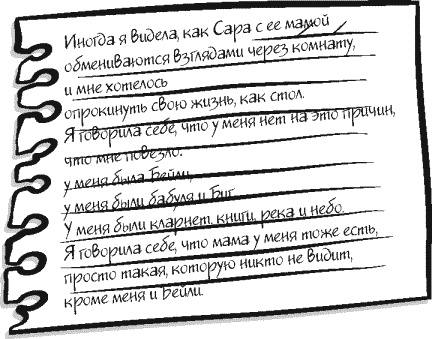 Иногда я видела, как Сара с ее мамой
обмениваются взглядами через комнату,
и мне хотелось
опрокинуть свою жизнь, как стол.
Я говорила себе, что у меня нет на это причин,
что мне повезло.
у меня была Бейли,
у меня были бабуля и Биг
У меня были кларнет, книги, река и небо.
Я говорила себе, что мама у меня тоже есть,
просто такая, которую никто не видит,
кроме меня и Бейли.